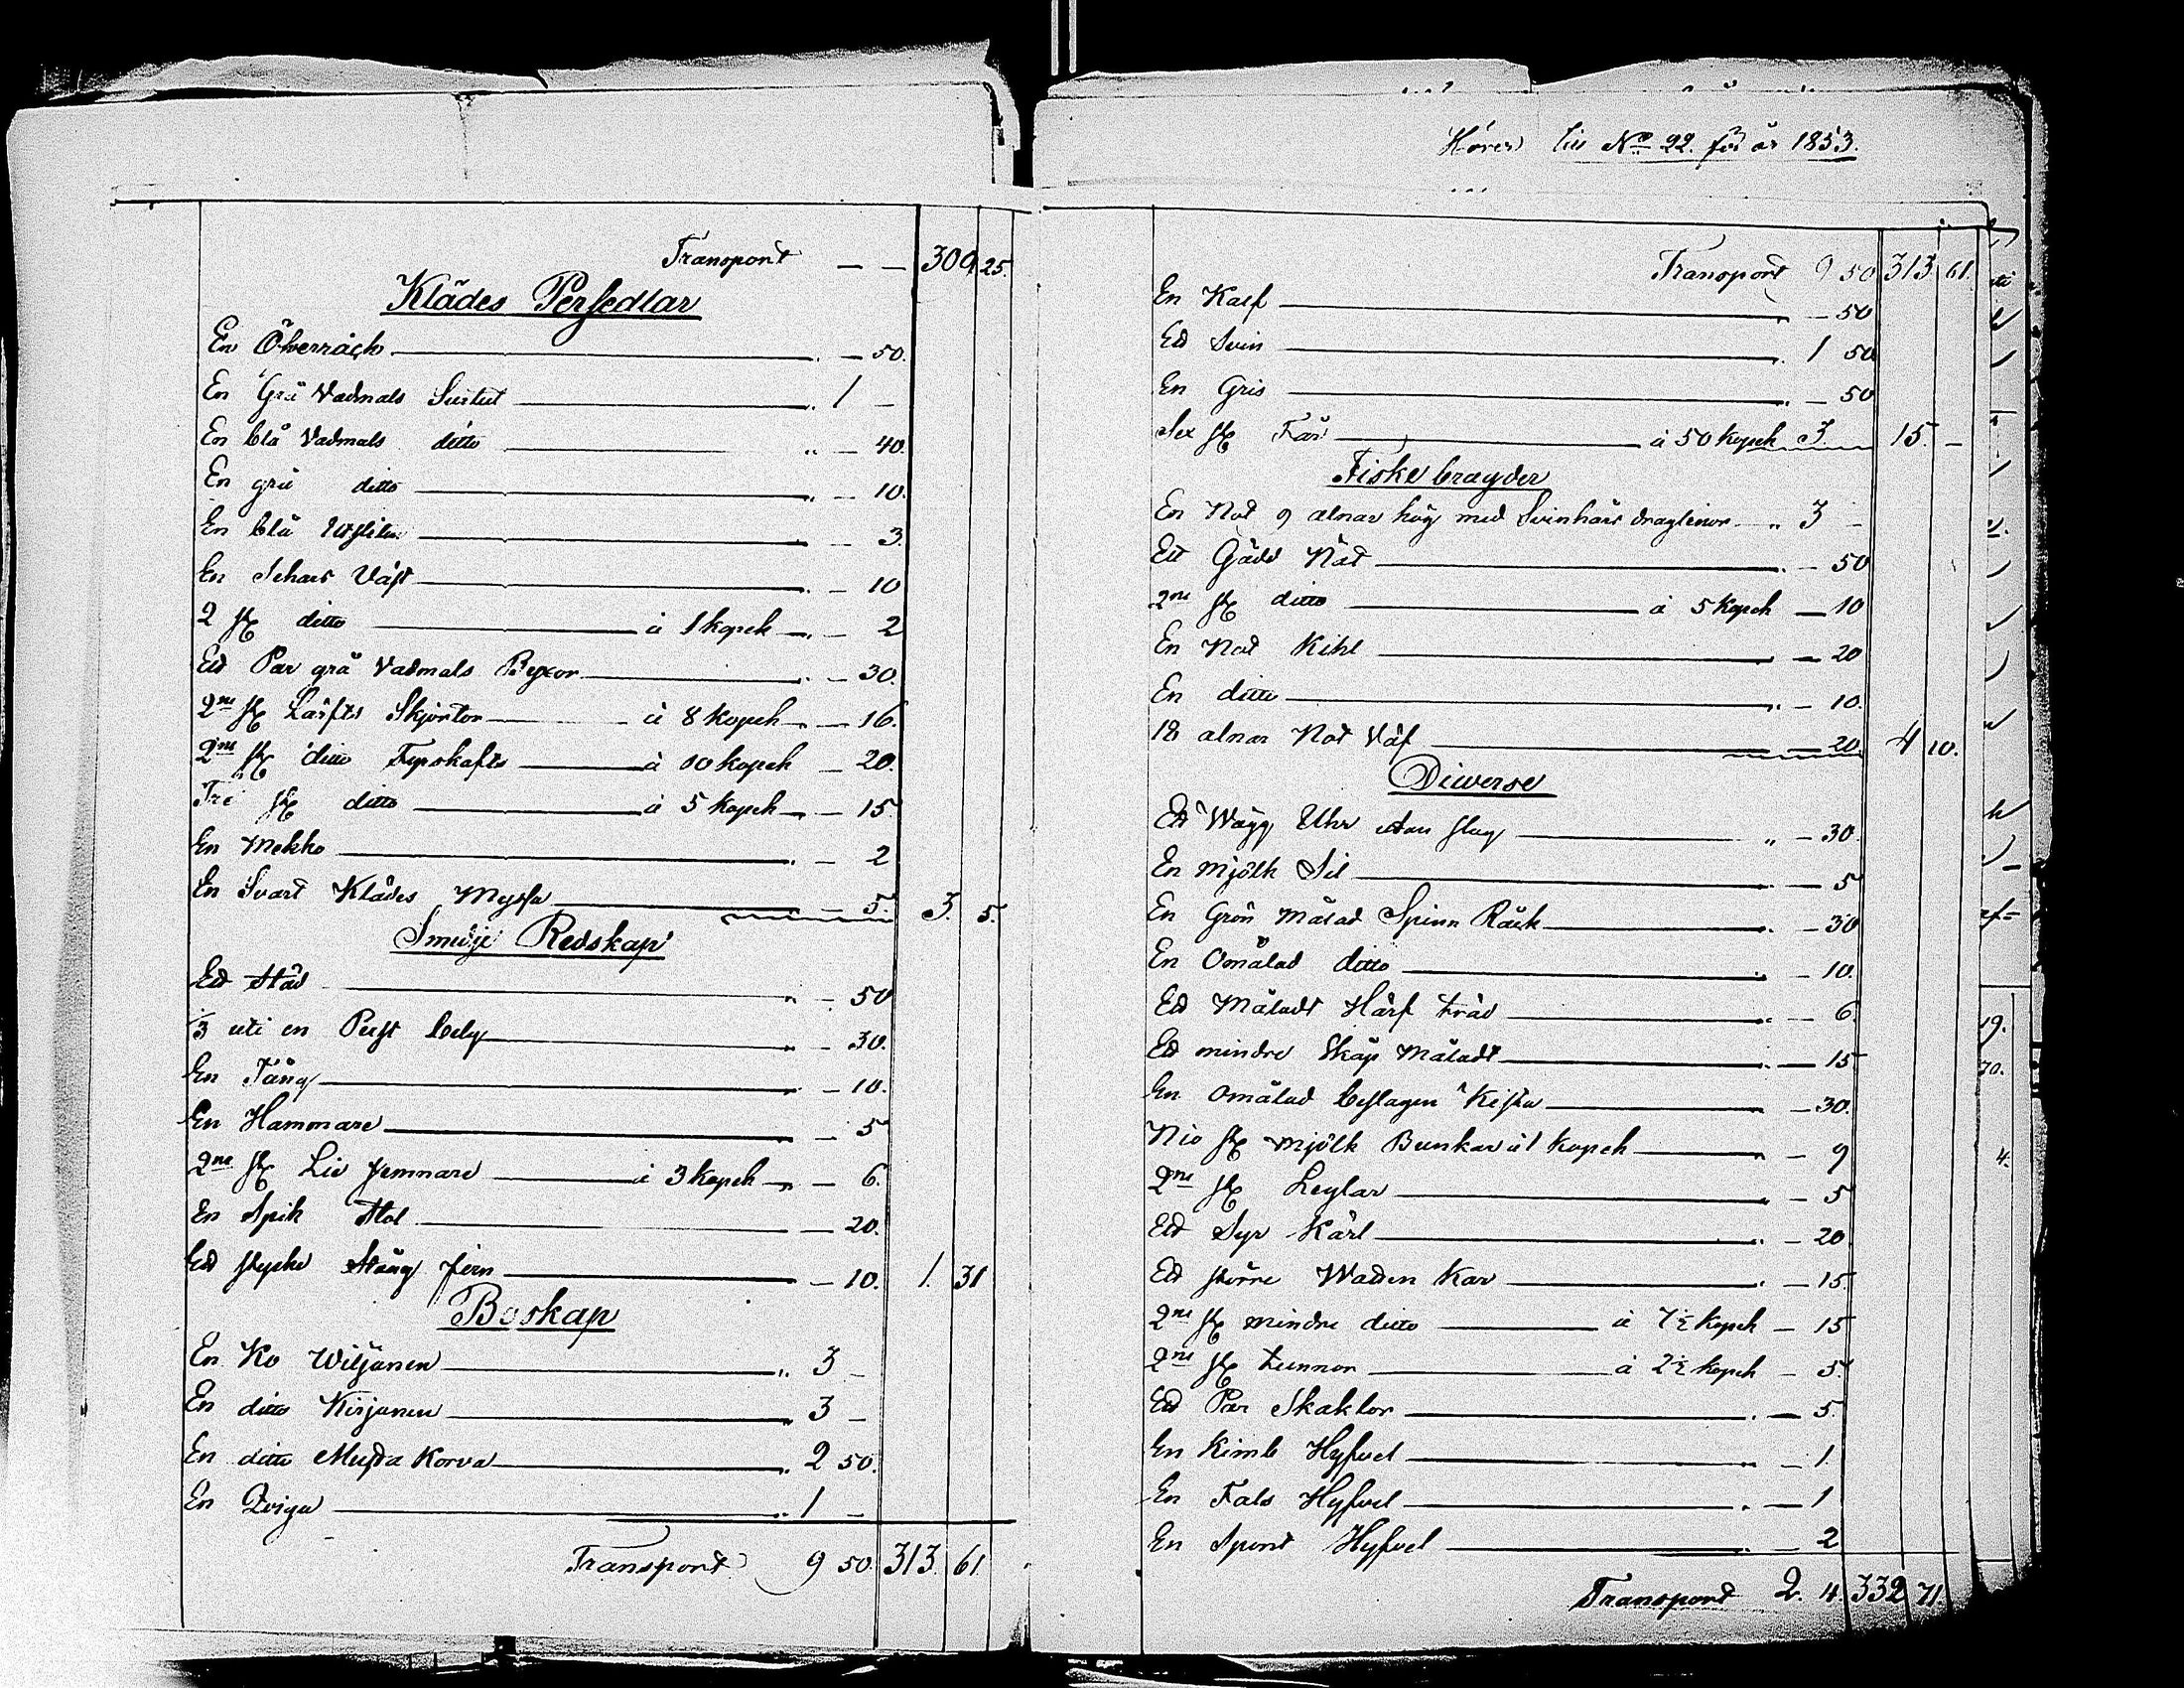 Transport — — 309 25.
Klädes Persedlar
En Öfverråck — 50.
En Grå Vadmals Surtut 1 —
En blå Vadmals ditto — 40.
En grå ditto — 10.
En blå — 3.
En Schars Väst — 10
2 st ditto à 1 kopek — 2
Ett Par grå Vadmals Byxor — 30.
2ne st Lärfts Skjortor à 8 kopek — 16.
2ne st ditto Fyrskafts à 10 kopek — 20.
Tre st ditto à 5 kopek — 15.
En Mekko — 2
En Svart Klädes Myssa — 5. 3. 5.
Smidje Redskap
Ett Städ — 50
⅓ uti en Pust belg — 30.
En Tång — 10.
En Hammare — 5
2ne st Lie jemnare à 3 kopek — 6.
En Spik Stol — 20.
Ett stycke Stång jern — 10. 1. 31
Boskap
En Ko Wiljanen 3 —
En ditto Kirjanen 3 —
En ditto Musta Korva 2 50.
En Qviga 1 —
Transport 9 50. 313. 61
Hörer till No 22. för år 1853.
Transport 9 50 313 61.
En Kalf — 50
Ett Svin 1 50
En Gris — 50
Sex st Får à 50 kopek 3. 15. —
Fiske bragder
En Not 9 alnar hög med Svinhårs draglinor 3 —
Ett Gädd Nät — 50
2ne st ditto à 5 kopek — 10
En Not Kihl — 20
En ditto — 10.
18 alnar Not Väf — 20. 4 10.
Diverse
Ett Wägg Uhr utan slag — 30.
En mjölk Sil — 5
En Grön målad Spinn Råck — 30
En Omålad ditto — 10.
Ett Måladt Härf träd — 6.
Ett mindre Skåp måladt — 15
En omålad beslagen Kista — 30.
Nio st mjölk Bunkar à 1 kopek — 9
2ne st Leglar — 5
Ett Syr Kärl — 20
Ett större Watten Kar — 15.
2ne st mindre ditto à 7½ kopek — 15
2ne st tunnor à 2½ kopek — 5.
Ett Par Skaklor — 5.
En Kimb Hyfvel — 1
En Fals Hyfvel — 1
En Spont Hyfvel — 2
Transport 2. 4. 332 71.